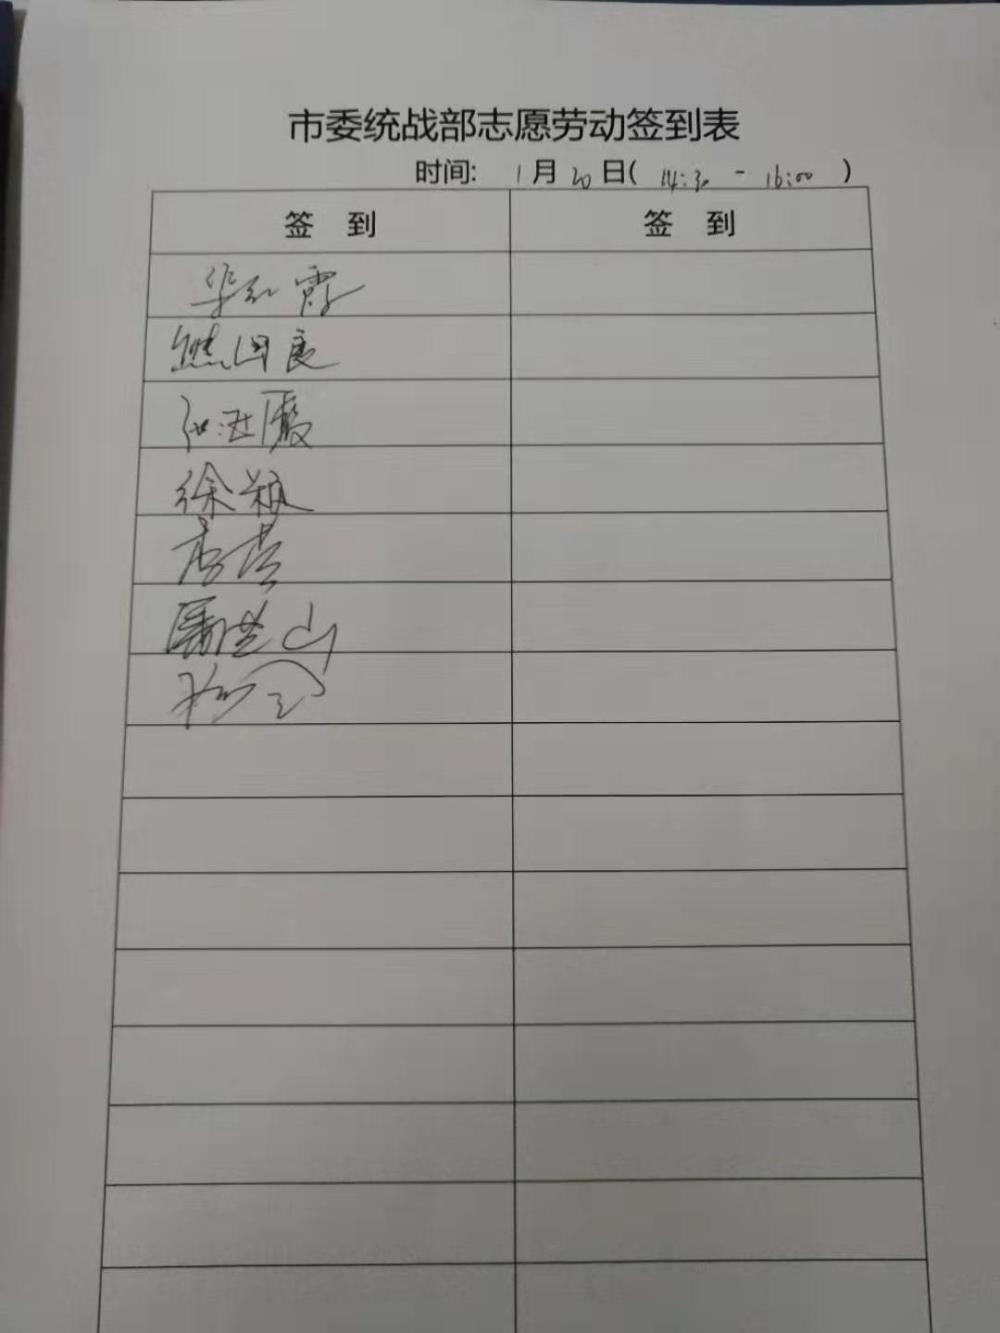 市委统战部志愿劳动签到表
时间: 1月20日( 14:30 - 16:00 )
签 到 签 到
华红霞
熊国良
徐颖
唐莹